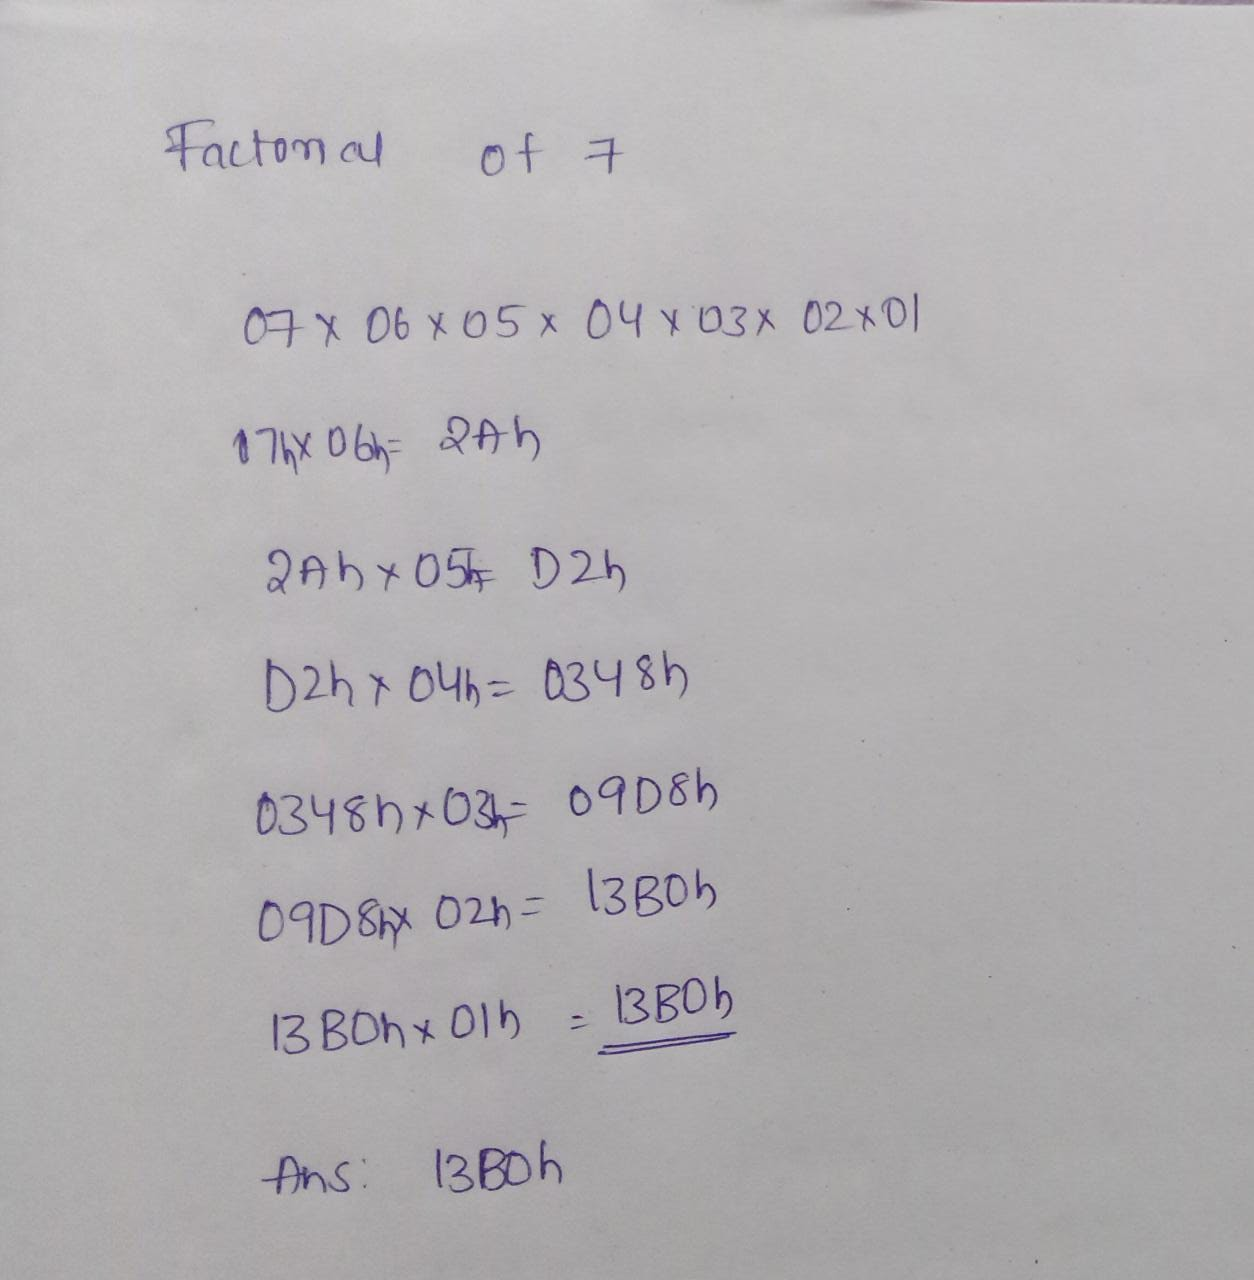 Factorial of 7
07 x 06 x 05 x 04 x 03 x 02 x 01
07h x 06h = 2Ah
2Ah x 05h = D2h
D2h x 04h = 0348h
0348h x 03h = 09D8h
09D8h x 02h = 13B0h
13B0h x 01h = 13B0h
Ans: 13B0h